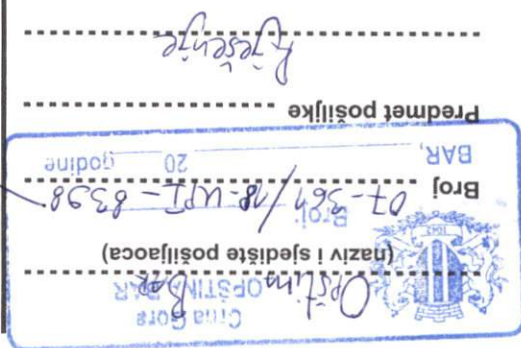 Crna Gora
OPŠTINA BAR
Opština Bar
(naziv i sjedište pošiljaoca)
Broj:
Broj 07-361/18-UPI-8398
BAR, 20 godine
Predmet pošiljke
Rješenje